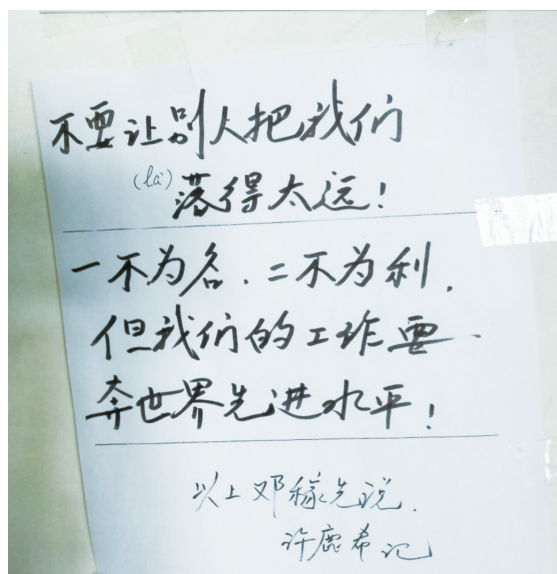 不要让别人把我们
(là)落得太远!
一不为名.二不为利.
但我们的工作要
奔世界先进水平!
以上邓稼先说.
许鹿希记